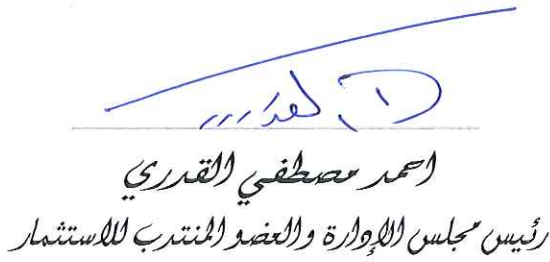 احمد مصطفي القدري
رئيس مجلس الإدارة والعضو المنتدب للاستثمار